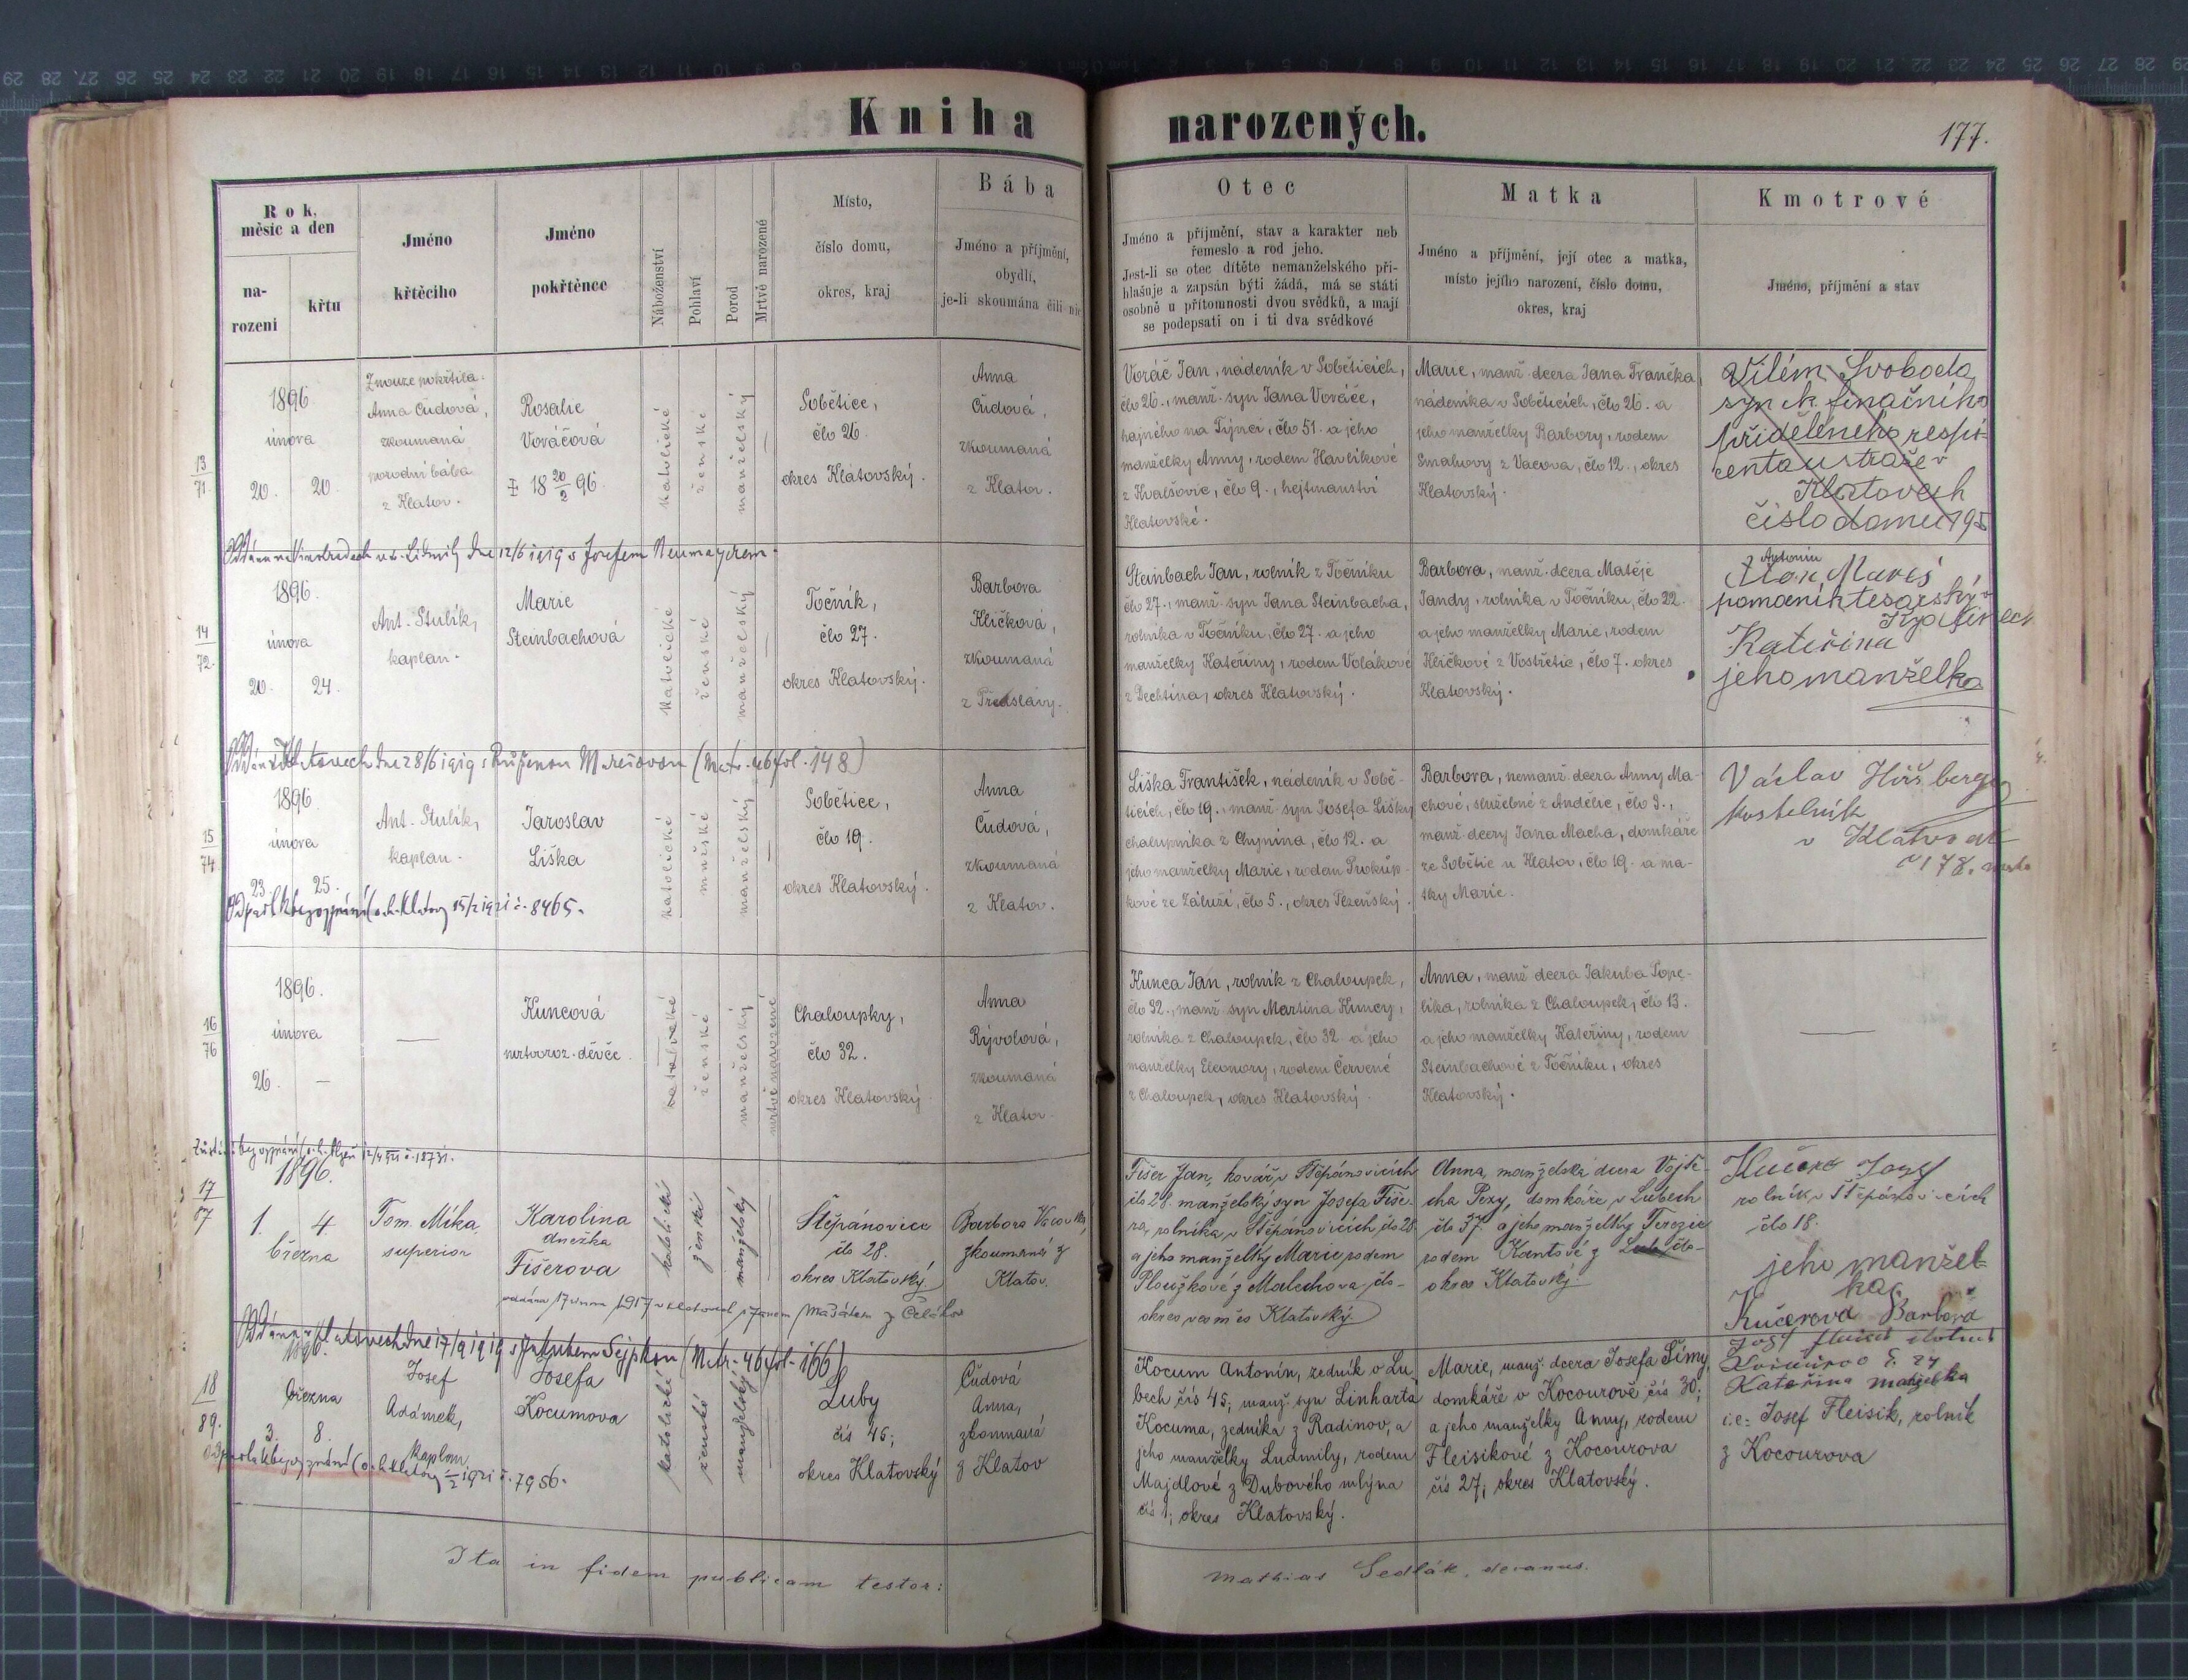 Kniha narozených.
177.
Rok, měsíc a den
narození
křtu
Jméno křtěcího
Jméno pokřtěnce
Náboženství
Pohlaví
Porod
Mrtvě narozené
Místo,
číslo domu,
okres, kraj
Bába
Jméno a příjmění,
obydlí,
je-li skoumána čili nic
Otec
Jméno a příjmění, stav a karakter neb
řemeslo a rod jeho.
Jest-li se otec dítěte nemanželského při-
hlašuje a zapsán býti žádá, má se státi
osobně u přítomnosti dvou svědků, a mají
se podepsati on i ti dva svědkové
Matka
Jméno a příjmění, její otec a matka,
místo jejího narození, číslo domu,
okres, kraj
Kmotrové
Jméno, příjmění a stav
13
71.
1896.
února
20. 20.
Z nouze pokřtila
Anna Čudová,
zkoumaná
porodní bába
z Klatov.
Rosalie
Voráčová
18 20/2 96.
katolické
ženské
manželský
Sobětice,
člo 26.
okres Klatovský.
Anna
Čudová,
zkoumaná
z Klatov.
Voráč Jan, nádeník v Soběticích,
člo 26., manž. syn Jana Voráče,
hajného na člo 51. a jeho
manželky Anny, rodem Havlíkové
člo 9., hejtmanství
Klatovské.
Marie, manž. dcera Jana
nádeníka v Soběticích, člo 26. a
jeho manželky Barbory, rodem
z Vacova, člo 12., okres
Klatovský.
Vilém Svoboda
syn c.k. finančního
přiděleného respi-
centa u stráže v
Klatovech
číslo domu 195
dne 12/6 1919 s Josefem Neumayerem.
14
72.
1896.
února
20. 24.
Ant. Stulík,
kaplan.
Marie
Steinbachová
katolické
ženské
manželský
Točník,
člo 27.
okres Klatovský.
Barbora
Klíčková,
zkoumaná
z Předslavy.
Steinbach Jan, rolník z Točníku
člo 27., manž. syn Jana Steinbacha,
rolníka v Točníku, člo 27. a jeho
manželky Kateřiny, rodem Volákové
z Dechtína, okres Klatovský.
Barbora, manž. dcera Matěje
Jandy, rolníka v Točníku, člo 22.
a jeho manželky Marie, rodem
Klíčkové z Vostřetic, člo 7. okres
Klatovský.
Antonín
Mareš
pomocník tesařský v
Kateřina
jeho manželka
v Klatovech dne 28/6 1919 s Růženou Marešovou (Matr. 46 fol. 148)
15
74
1896.
února
23. 25.
Ant. Stulík,
kaplan.
Jaroslav
Liška
katolické
mužské
manželský
Sobětice,
člo 19.
okres Klatovský.
Anna
Čudová,
zkoumaná
z Klatov.
Liška František, nádeník v Sobě-
ticích, člo 19., manž. syn Josefa Lišky
chalupníka z Chynína, člo 12. a
jeho manželky Marie, rodem Prokůp-
kové ze Záluží, člo 5., okres Plzeňský.
Barbora, nemanž. dcera Anny Ma-
chové, služebné z Andělic, člo 9.,
manž. dcery Jana Macha, domkáře
ze Sobětic u Klatov, člo 19. a ma-
tky Marie.
Václav
kostelník
v Klatovech
č 178.
bez vyznání (o.h. Klatovy 15/2 1921 č. 8465.
16
76
1896.
února
26. —
—
Kuncová
mrtvoroz. děvče.
katolické
ženské
manželský
mrtvě narozené
Chaloupky,
člo 32.
okres Klatovský.
Anna
Rývolová,
zkoumaná
z Klatov.
Kunca Jan, rolník z Chaloupek,
člo 32., manž. syn Martina Kuncy,
rolníka z Chaloupek, člo 32 a jeho
manželky Eleonory, rodem Červené
z Chaloupek, okres Klatovský.
Anna, manž. dcera Jakuba Pope-
líka, rolníka z Chaloupek, člo 13.
a jeho manželky Kateřiny, rodem
Steinbachové z Točníku, okres
Klatovský.
—
bez vyznání
17
87
1896.
1. 4.
března
Tom. Míka,
superior
Karolina
Fišerova
katolické
ženské
manželský
Štěpánovice
člo 28.
okres Klatovský.
Barbora
zkoumaná z
Klatov.
Fišer Jan, kovář v Štěpánovicích
člo 28. manželský syn Josefa Fiše-
ra, rolníka v Štěpánovicích, člo 28
a jeho manželky Marie rodem
z Malechova, člo –
okres Klatovský.
Anna, manželská dcera Vojtě-
cha domkáře v Lubech
člo 37. a jeho manželky Terezie
rodem Kantové z Lub, člo –
okres Klatovský.
Kučera Josef
rolník v Štěpánovicích
člo 18.
jeho manžel-
ka
Kučerova Barbora
v Klatovech dne 17/9 1919 s Jakubem Sejpkou (Matr. 46 fol. 166)
18
89.
1896.
března
3. 8.
Josef
Adámek,
kaplan.
Josefa
Kocumova
katolické
ženské
manželský
Luby
čís 45;
okres Klatovský
Čudová
Anna,
zkoumaná
z Klatov
Kocum Antonín, zedník v Lu
bech čís 45; manž. syn Linharta
Kocuma, zedníka z Radinov, a
jeho manželky Ludmily, rodem
Majdlové z Dubového mlýna
čís 1; okres Klatovský.
Marie, manž. dcera Josefa Šímy,
domkáře v Kocourově čís 30;
a jeho manželky Anny, rodem
Fleisikové z Kocourova
čís 27; okres Klatovský.
Kateřina manželka
i.e. Josef Fleisik, rolník
z Kocourova
bez vyznání (o.h. Klatovy 1921 č. 7956.
Ita in fidem publicam testor:
Mathias Sedlák, decanus.